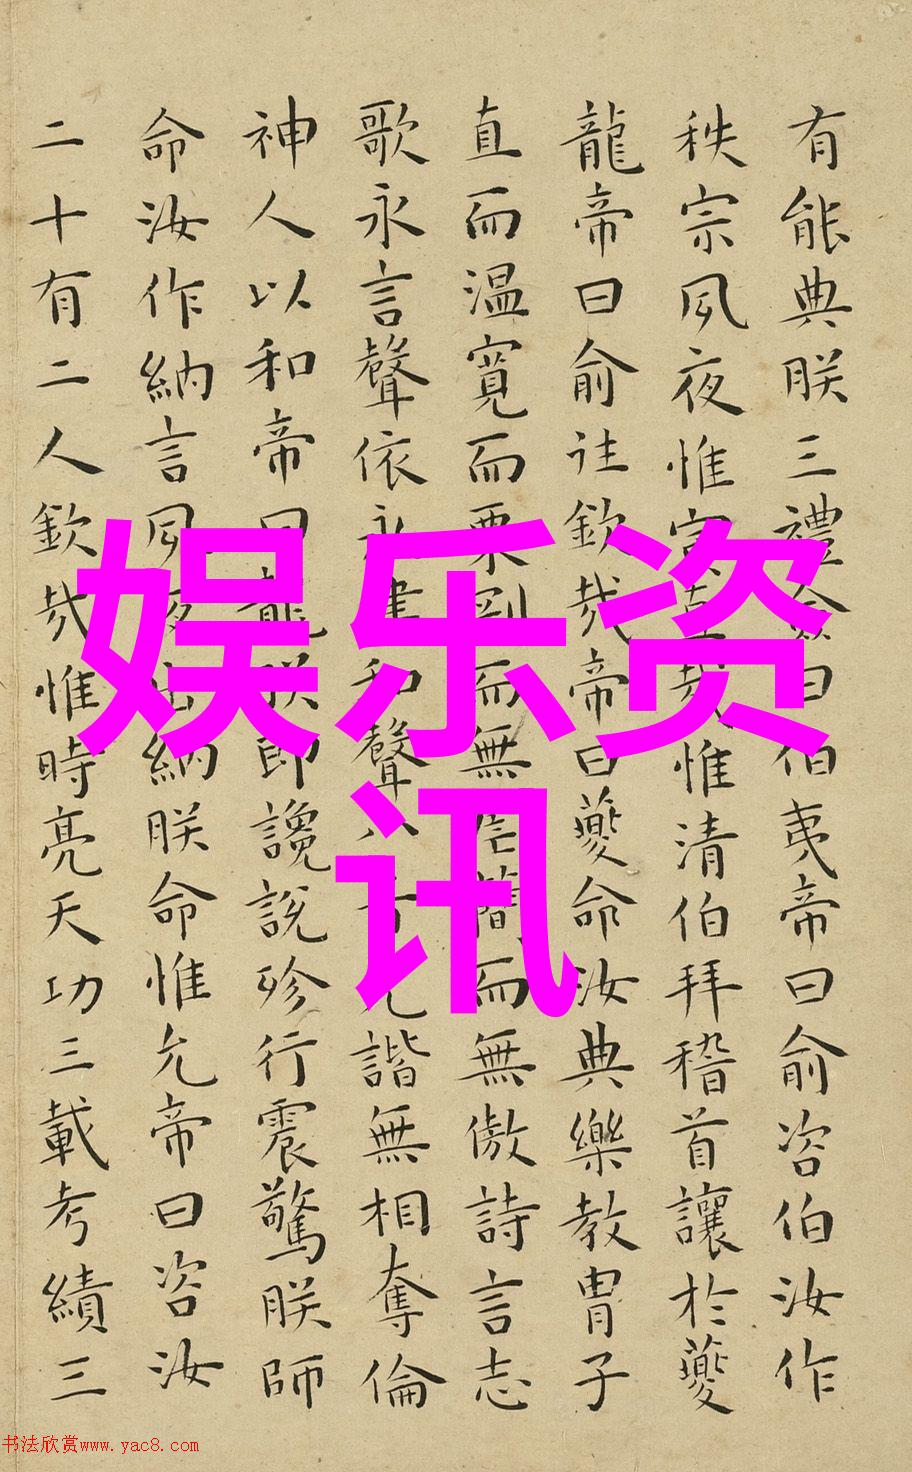 有能典朕三禮僉曰伯夷帝曰俞咨伯汝作
秩宗夙夜惟寅直哉惟清伯拜稽首讓於夔
龍帝曰俞往欽哉帝曰夔命汝典樂教胄子
直而温寬而栗剛而無虐簡而無傲詩言志
歌永言聲依永律和聲八音克諧無相奪倫
神人以和帝曰龍朕即讒說殄行震驚朕師
命汝作納言夙夜出納朕命惟允帝曰咨汝
二十有二人欽哉惟時亮天功三載考績三
娱乐资
讯
书法欣赏www.yac8.com